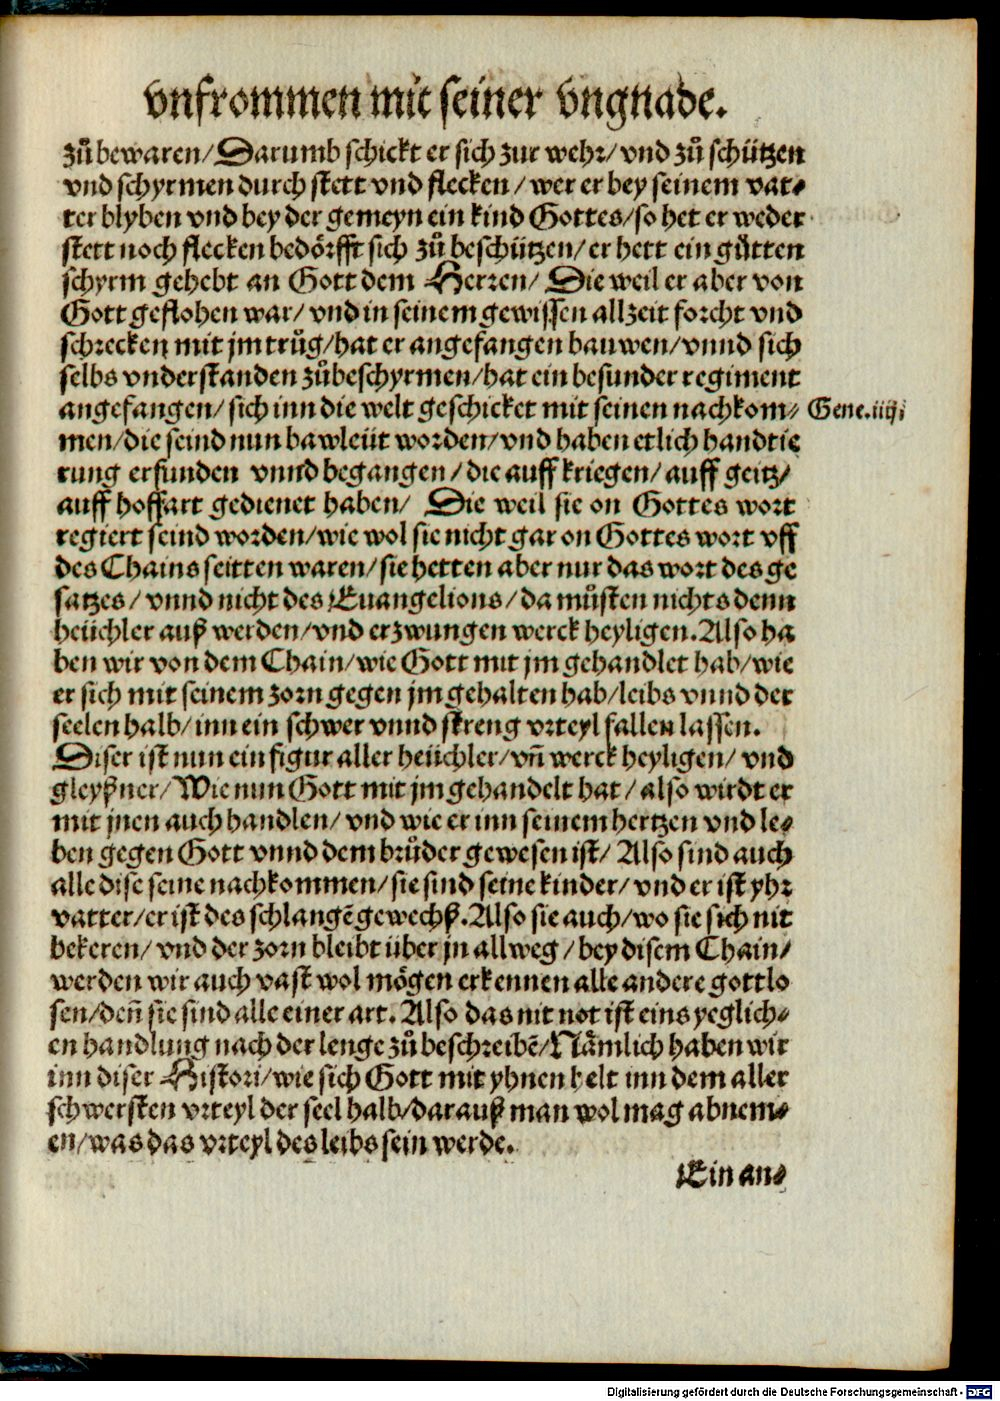 vnfrommen mit seiner vngnade.
zuͦ bewaren/ Darumb schickt er sich zur wehr/ vnd zuͦ schützen
vnd schyrmen durch stett vnd flecken/ wer er bey seinem vat⸗
ter blyben vnd bey der gemeyn ein kind Gottes/ so het er weder
stett noch flecken bedoͤrfft sich zuͦ beschützen/ er hett ein guͦtten
schyrm gehebt an Gott dem Herren/ Die weil er aber von
Gott geflohen war/ vnd in seinem gewissen allzeit forcht vnd
schrecken mit jm truͦg/ hat er angefangen bauwen/ vnnd sich
selbs vnderstanden zuͦbeschyrmen/ hat ein besunder regiment
angefangen/ sich inn die welt geschicket mit seinen nachkom⸗ Gene.iiij
men/ die seind nun bawleüt worden/ vnd haben etlich handtie
rung erfunden vnnd begangen/ die auff kriegen/ auff geitz/
auff hoffart gedienet haben/ Die weil sie on Gottes wort
regiert seind worden/ wie wol sie nicht gar on Gottes wort vff
des Chains seitten waren/ sie hetten aber nur das wort des ge
satzes/ vnnd nicht des Euangelions/ da muͦsten nichts denn
heüchler auß werden/ vnd erzwungen werck heyligen. Also ha
ben wir von dem Chain/ wie Gott mit jm gehandlet hab/ wie
er sich mit seinem zorn gegen jm gehalten hab/ leibs vnnd der
seelen halb/ inn ein schwer vnnd streng vrteyl fallen lassen.
Diser ist nun ein figur aller heüchler/ vñ werck heyligen/ vnd
gleyßner/ Wie nun Gott mit jm gehandelt hat/ also wirdt er
mit jnen auch handlen/ vnd wie er inn seinem hertzen vnd le⸗
ben gegen Gott vnnd dem bruͦder gewesen ist/ Also sind auch
alle dise seine nachkommen/ sie sind seine kinder/ vnd er ist yhr
vatter/ er ist des schlangẽ gewechß. Also sie auch/ wo sie sich nit
bekeren/ vnd der zorn bleibt über jn allweg/ bey disem Chain/
werden wir auch vast wol moͤgen erkennen alle andere gottlo
sen/ deñ sie sind alle einer art. Also das nit not ist eins yeglich⸗
en handlung nach der lenge zuͦ beschreibẽ/ Naͤmlich haben wir
inn diser Histori/ wie sich Gott mit yhnen helt inn dem aller
schwersten vrteyl der seel halb/ darauß man wol mag abnem⸗
en/ was das vrteyl des leibs sein werde.
Ein an⸗
Digitalisierung gefördert durch die Deutsche Forschungsgemeinschaft - DFG